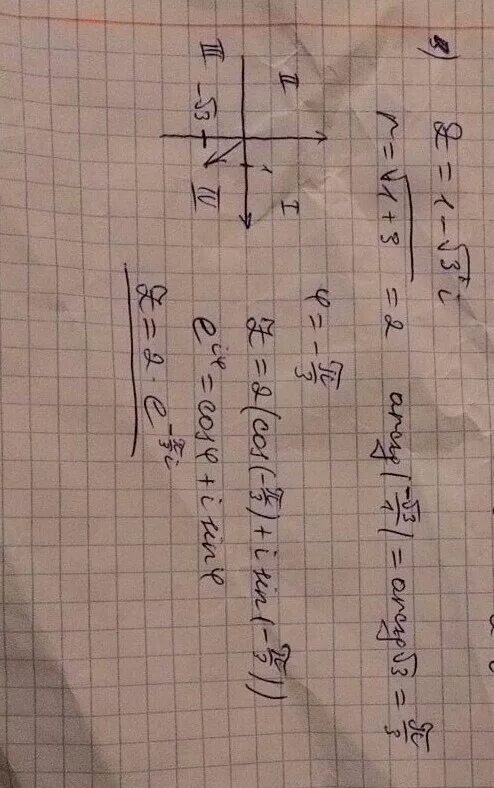 в) z = 1 - √3 i
r = √1+3 = 2 arctg(-√3/1) = arctg √3 = π/3
II I
1
III -√3 IV
φ = -π/3
z = 2(cos(-π/3) + i sin(-π/3))
e^iφ = cosφ + i sinφ
z = 2 · e^-π/3 i